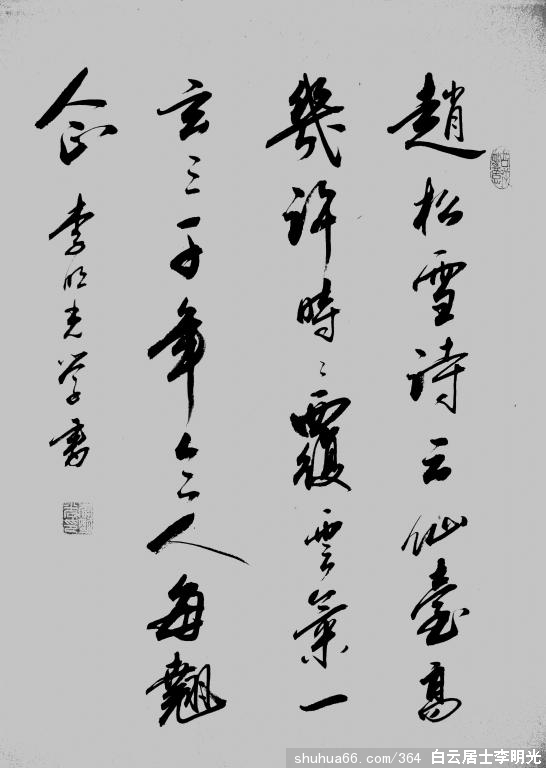 趙松雪詩云仙臺高
幾許時〻覆雲氣一
去三千年令人每翹
企 李明光学書
shuhua66.com/364 白云居士李明光